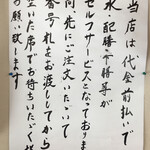 当店は代金前払いで
水・配膳・下膳等が
セルフサービスとなっております
向先にご注文いただいて
番号札をお渡ししてから
空いた席でお待ちいただく様
お願い致します